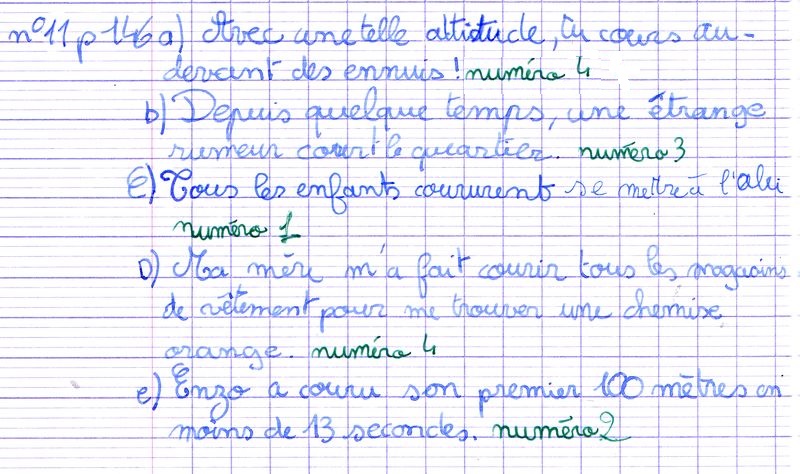 n°11 p 146 a) Avec une telle attitude, tu cours au-
devant des ennuis ! numéro 4
b) Depuis quelque temps, une étrange
rumeur court le quartier. numéro 3
C) Tous les enfants coururent se mettre à l'abri
numéro 1
D) Ma mère m'a fait courir tous les magasins
de vêtement pour me trouver une chemise
orange. numéro 4
e) Enzo a couru son premier 100 mètres en
moins de 13 secondes. numéro 2